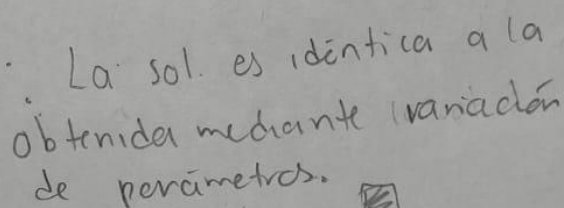 ∴ La sol. es idéntica a la
obtenida mediante variación
de parámetros.